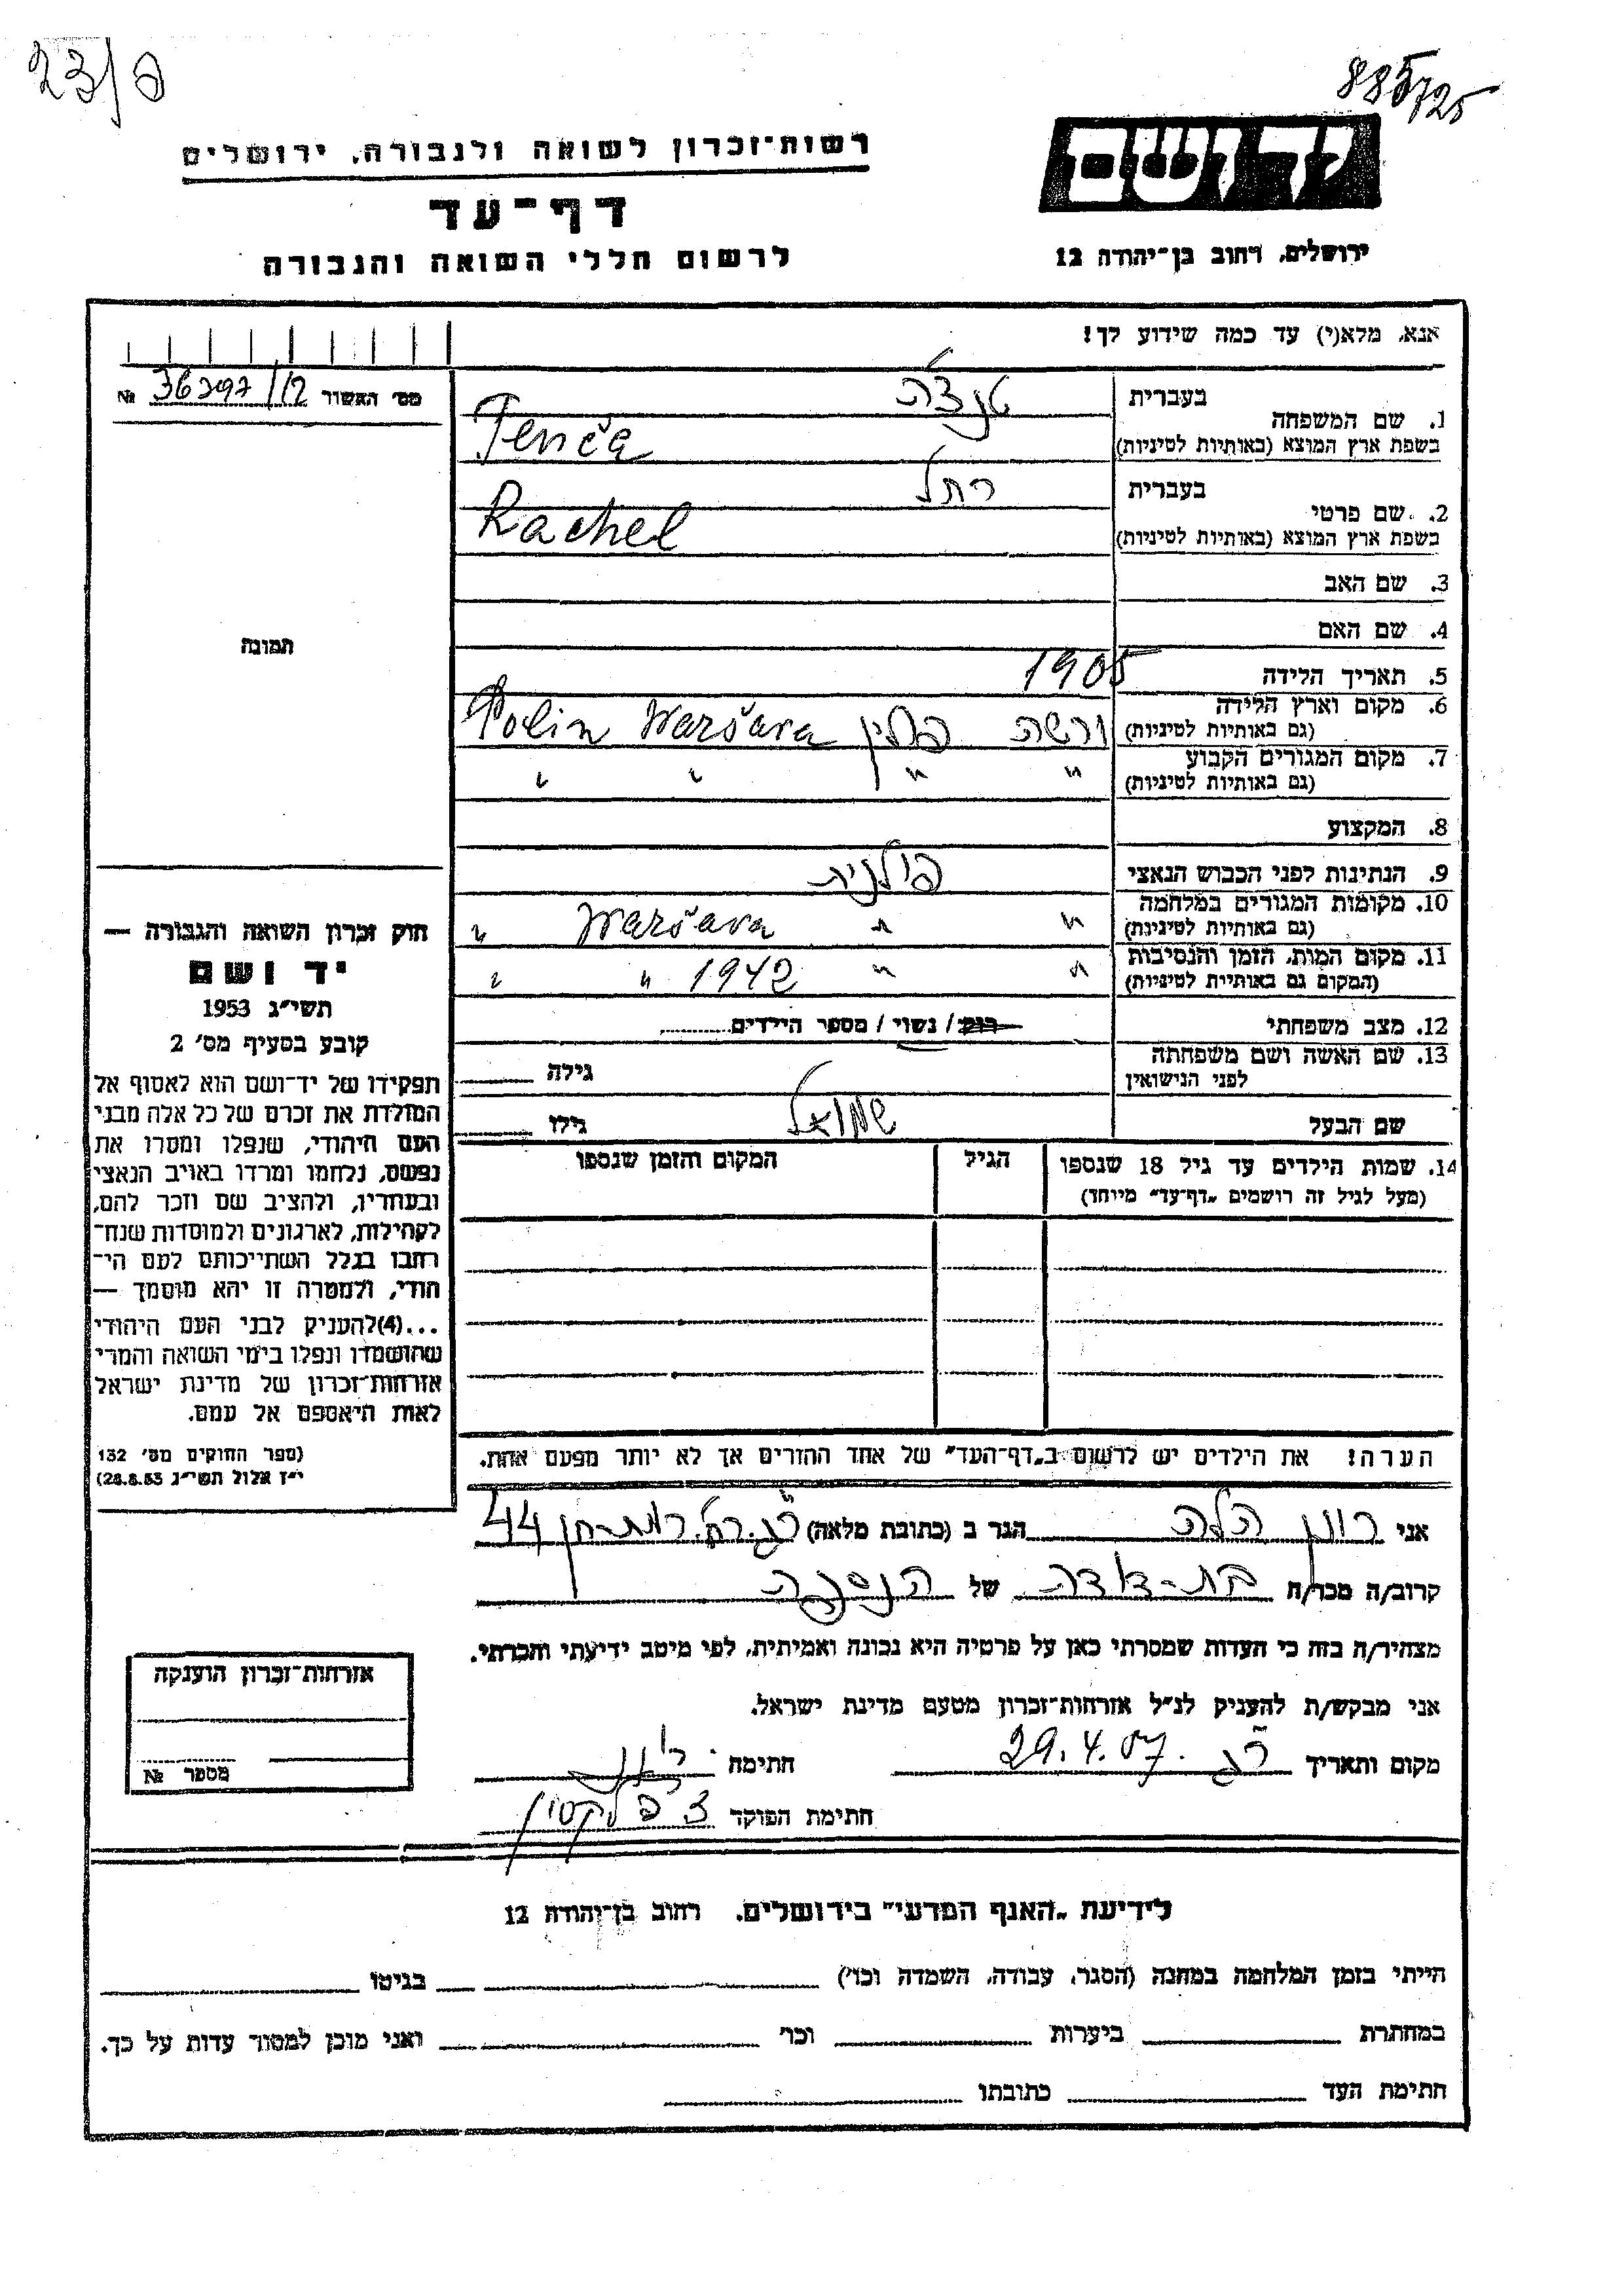 23/ם
885725
יד ושם
רשות־זכרון לשואה ולגבורה, ירושלים
דף־עד
לרשום חללי השואה והגבורה
ירושלים, רחוב בן־יהודה 12
אנא, מלא(י) עד כמה שידוע לך!
מס׳ האשור 36297/12 №
תמונה
1. שם המשפחה בעברית טנצ'ה
בשפת ארץ המוצא (באותיות לטיניות) Tenča
2. שם פרטי בעברית רחל
בשפת ארץ המוצא (באותיות לטיניות) Rachel
3. שם האב
4. שם האם
5. תאריך הלידה 1905
6. מקום וארץ הלידה ורשה פולין Polin Waršava
(גם באותיות לטיניות)
7. מקום המגורים הקבוע " " " "
(גם באותיות לטיניות)
8. המקצוע
9. הנתינות לפני הכבוש הנאצי פולנית
10. מקומות המגורים במלחמה " " Waršava "
(גם באותיות לטיניות)
11. מקום המות, הזמן והנסיבות " " 1942 " "
(המקום גם באותיית לטיניות)
12. מצב משפחתי רווק / נשוי / מספר הילדים
13. שם האשה ושם משפחתה גילה
לפני הנישואין
שם הבעל שמואל גילו
14. שמות הילדים עד גיל 18 שנספו הגיל המקום והזמן שנספו
(מעל לגיל זה רושמים „דף־עד" מייחד)
הערה! את הילדים יש לרשום ב„דף־העד" של אחד ההורים אך לא יותר מפעם אחת.
חוק זכרון השואה והגבורה —
יד ושם
תשי"ג 1953
קובע בסעיף מס׳ 2
תפקידו של יד־ושם הוא לאסוף אל
המולדת את זכרם של כל אלה מבני
העם היהודי, שנפלו ומסרו את
נפשם, נלחמו ומרדו באויב הנאצי
ובעוזריו, ולהציב שם וזכר להם,
לקהילות, לארגונים ולמוסדות שנח־
רבו בגלל השתייכותם לעם הי־
הודי, ולמטרה זו יהא מוסמך —
...(4)להעניק לבני העם היהודי
שהושמדו ונפלו בימי השואה והמרי
אזרחות־זכרון של מדינת ישראל
לאות היאספם אל עמם.
(ספר החוקים מס׳ 132
י"ז אלול תשי"ג 28.8.53)
אני רונן הלה הגר ב (כתובת מלאה) 44
קרוב/ה מכר/ה בת-דודה של הנספה
מצהיר/ה בזה כי העדות שמסרתי כאן על פרטיה היא נכונה ואמיתית, לפי מיטב ידיעתי והכרתי.
אני מבקש/ת להעניק לנ"ל אזרחות־זכרון מטעם מדינת ישראל.
מקום ותאריך ר"ג 29.4.57 חתימה
חתימת הפוקד
אזרחות־זכרון הוענקה
מספר №
לידיעת „האגף המדעי" בירושלים. רחוב בן־יהודה 12
הייתי בזמן המלחמה במחנה (הסגר, עבודה, השמדה וכו׳) בגיטו
במחתרת ביערות וכו׳ ואני מוכן למסור עדות על כך.
חתימת העד כתובתו